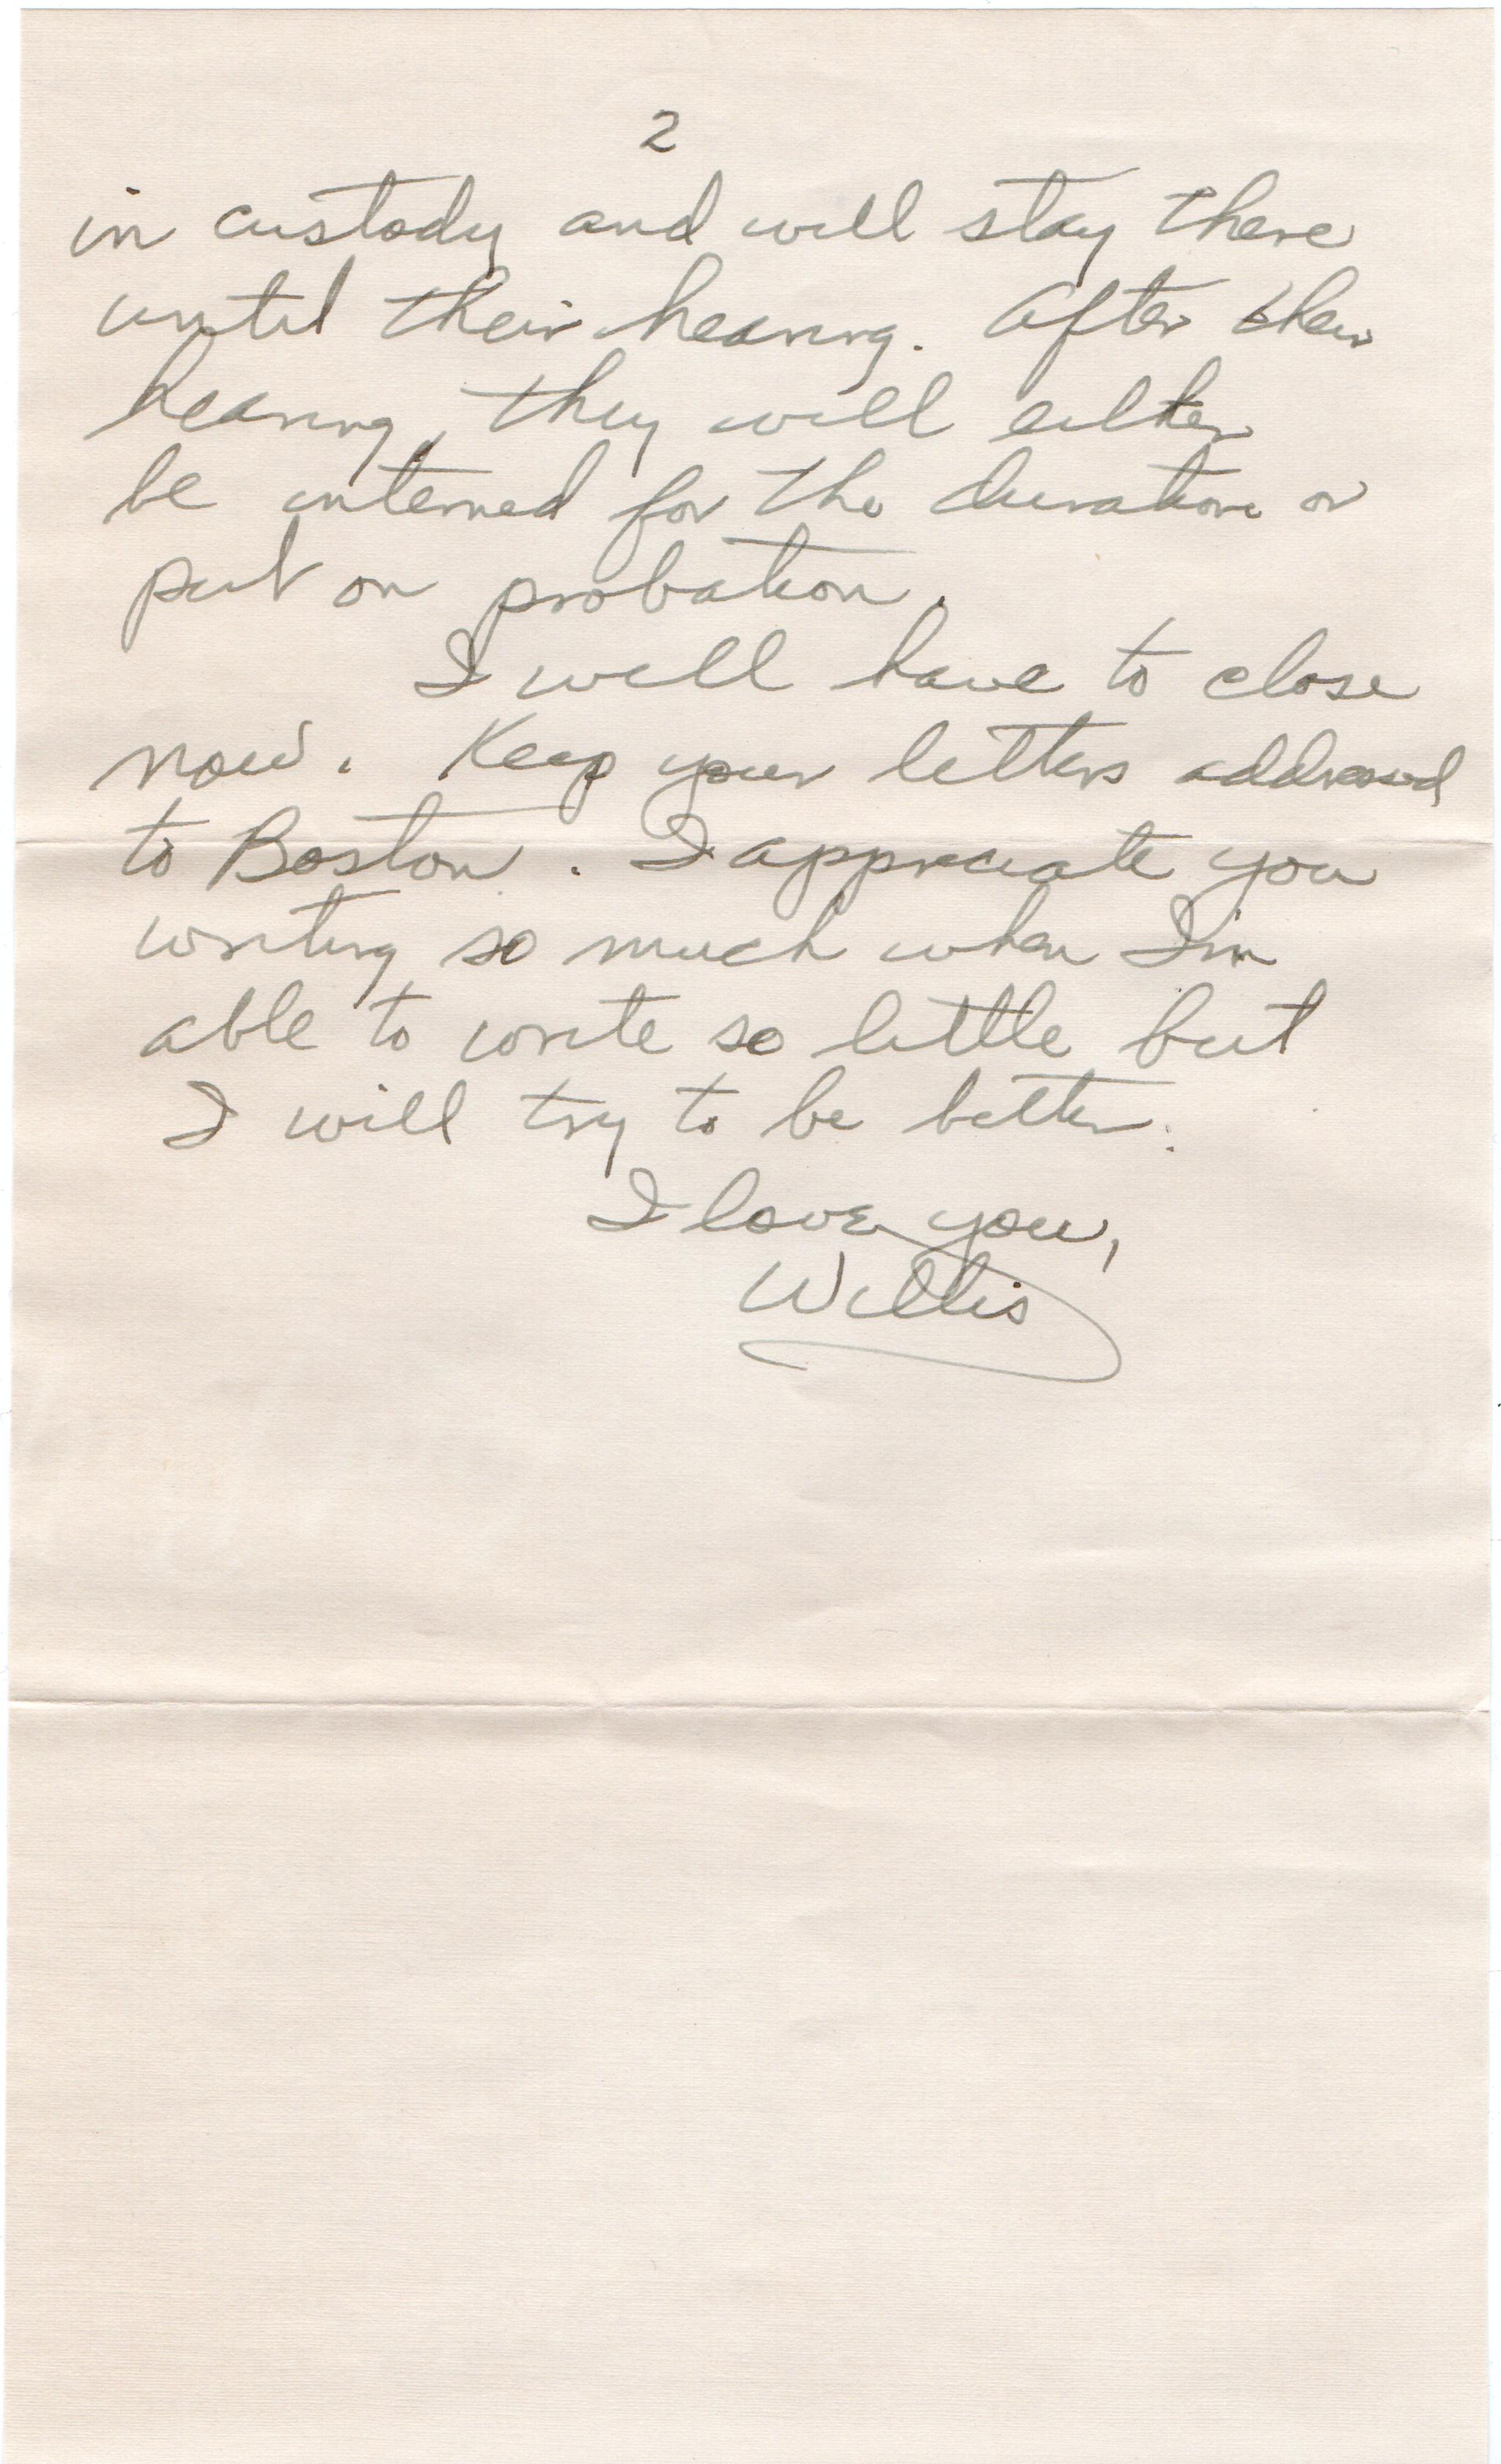 2
in custody and will stay there
until their hearing. After their
hearing, they will either
be interned for the duration or
put on probation.
I will have to close
now. Keep your letters addressed
to Boston. I appreciate you
writing so much when I'm
able to write so little but
I will try to be better.
I love you,
Willis